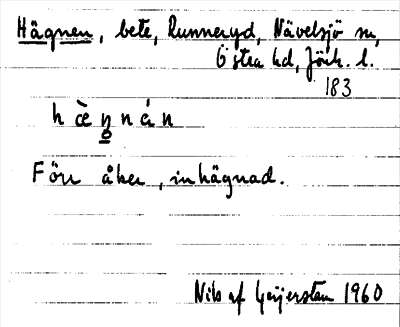 Hägnen, bete, Runneryd, Nävelsjö sn,
Östra hd, Jönk. l.
183
hæ̀n̥nán
Förr åker, inhägnad.
Nils af Geijerstam 1960